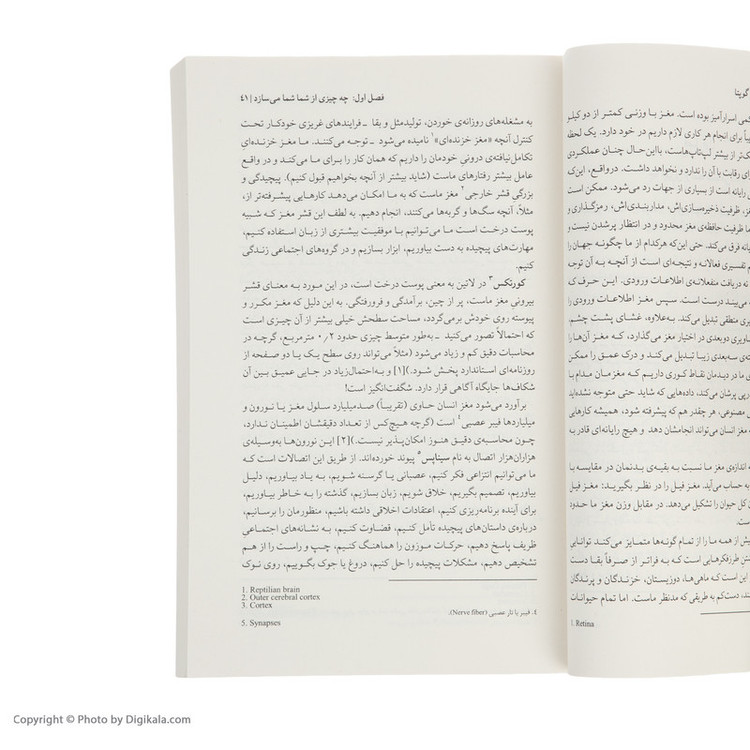 گویتا
کمی اسرارآمیز بوده است. مغز با وزنی کمتر از دو کیلو
یباً برای انجام هر کاری لازم داریم در خود دارد. یک لحظه
کتر از بیشتر لپ‌تاپ‌هاست، بااین‌حال چنان عملکردی
رای رقابت با آن را ندارد و نخواهد داشت. درواقع، این‌که
رایانه است از بسیاری از جهات رد می‌شود. ممکن است
غز، ظرفیت ذخیره‌سازی‌اش، مداربندی‌اش، رمزگذاری و
ما ظرفیت حافظه‌ی مغز محدود و در انتظار پرشدن نیست و
یانه فرق می‌کند. حتی این‌که هرکدام از ما چگونه جهان را
تفسیری فعالانه و نتیجه‌ای است از آنچه به آن توجه
نه دریافت منفعلانه‌ی اطلاعات ورودی. این حرف که
می‌بینند درست است. سپس مغز اطلاعات ورودی را
یری منطقی تبدیل می‌کند. به‌علاوه، غشای پشت چشم
صاویری دوبعدی در اختیار مغز می‌گذارد، که مغز آن‌ها را
ی سه‌بعدی زیبا تبدیل می‌کند و درک عمق را ممکن
ی ما در دیدمان نقاط کوری داریم که مغزمان مدام با
پرشان می‌کند، داده‌هایی که شاید حتی متوجه نشده‌اید
مصنوعی، هر چقدر هم که پیشرفته شود، همیشه کارهایی
مغز انسان می‌تواند انجامشان دهد و هیچ رایانه‌ای قادر به
اندازه‌ی مغز ما نسبت به بقیه‌ی بدنمان در مقایسه با
به حساب می‌آید. مغز فیل را در نظر بگیرید: مغز فیل
ن کل حیوان را تشکیل می‌دهد. در مقابل وزن مغز ما حدود
یش از همه ما را از تمام گونه‌ها متمایز می‌کند توانایی
شتن طرز فکرهایی است که به فراتر از صرفاً بقا دست
این است که ماهی‌ها، دوزیستان، خزندگان و پرندگان
ند، دست‌کم به طریقی که مدنظر ماست. اما تمام حیوانات
1. Retina
فصل اول: چه چیزی از شما شما می‌سازد | ۴۱
به مشغله‌های روزانه‌ی خوردن، تولیدمثل و بقا ـ فرایندهای غریزی خودکار تحت
کنترل آنچه «مغز خزنده‌ای»۱ نامیده می‌شود ـ توجه می‌کنند. ما مغز خزنده‌ای
تکامل‌نیافته‌ی درونیِ خودمان را داریم که همان کار را برای ما می‌کند و در واقع
عامل بیشتر رفتارهای ماست (شاید بیشتر از آنچه بخواهیم قبول کنیم). پیچیدگی و
بزرگیِ قشر خارجی۲ مغز ماست که به ما امکان می‌دهد کارهایی پیشرفته‌تر از،
مثلاً، آنچه سگ‌ها و گربه‌ها می‌کنند، انجام دهیم. به لطف این قشر مغز که شبیه
پوست درخت است ما می‌توانیم با موفقیت بیشتری از زبان استفاده کنیم،
مهارت‌های پیچیده به دست بیاوریم، ابزار بسازیم و در گروه‌های اجتماعی زندگی
کنیم.
کورتکس۳ در لاتین به معنی پوست درخت است، در این مورد به معنای قشر
بیرونیِ مغز ماست، پر از چین، برآمدگی و فرورفتگی. به این دلیل که مغز مکرر و
پیوسته روی خودش برمی‌گردد، مساحت سطحش خیلی بیشتر از آن چیزی است
که احتمالاً تصور کنید ـ به‌طور متوسط چیزی حدود ۰/۲ مترمربع، گرچه در
محاسبات دقیق کم و زیاد می‌شود (مثلاً می‌تواند روی سطح یک یا دو صفحه از
روزنامه‌ای استاندارد پخش شود.)[۱] و به‌احتمال‌زیاد در جایی عمیق بین آن
شکاف‌ها جایگاه آگاهی قرار دارد. شگفت‌انگیز است!
برآورد می‌شود مغز انسان حاوی (تقریباً) صدمیلیارد سلول مغز یا نورون و
میلیاردها فیبر عصبی۴ است (گرچه هیچ‌کس از تعداد دقیقشان اطمینان ندارد،
چون محاسبه‌ی دقیق هنوز امکان‌پذیر نیست.)[۲] این نورون‌ها به‌وسیله‌ی
هزاران‌هزار اتصال به نام سیناپس۵ پیوند خورده‌اند. از طریق این اتصالات است که
ما می‌توانیم انتزاعی فکر کنیم، عصبانی یا گرسنه شویم، به یاد بیاوریم، دلیل
بیاوریم، تصمیم بگیریم، خلاق شویم، زبان بسازیم، گذشته را به خاطر بیاوریم،
برای آینده برنامه‌ریزی کنیم، اعتقادات اخلاقی داشته باشیم، منظورمان را برسانیم،
درباره‌ی داستان‌های پیچیده تأمل کنیم، قضاوت کنیم، به نشانه‌های اجتماعیِ
ظریف پاسخ دهیم، حرکات موزون را هماهنگ کنیم، چپ و راست را از هم
تشخیص دهیم، مشکلات پیچیده را حل کنیم، دروغ یا جوک بگوییم، روی نوک
1. Reptilian brain
2. Outer cerebral cortex
3. Cortex
۴. فیبر یا تار عصبی (Nerve fiber).
5. Synapses
Copyright © Photo by Digikala.com